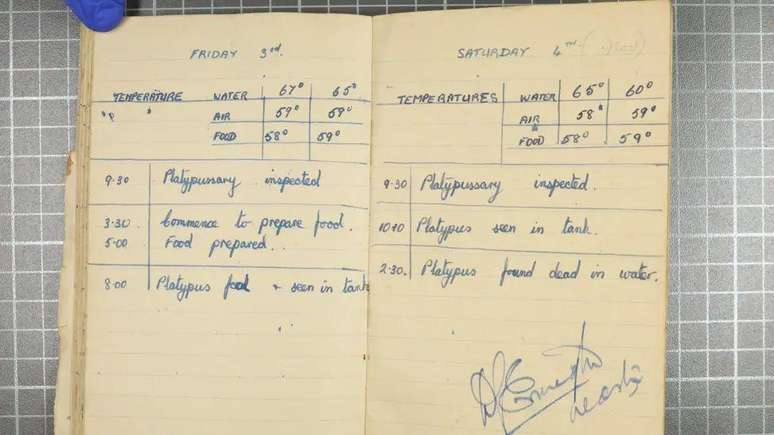 FRIDAY 3rd.
TEMPERATURE WATER 67° 65°
" " AIR 59° 59°
FOOD 58° 59°
9.30 Platypussary inspected
3.30. Commence to prepare food.
5.00 Food prepared..
8.00 Platypus food & seen in tank
SATURDAY 4TH
TEMPERATURES WATER 65° 60°
AIR 58° 59°
FOOD 58° 59°
9.30 Platypussary inspected.
10.10 Platypus seen in tank.
2.30. Platypus found dead in water.